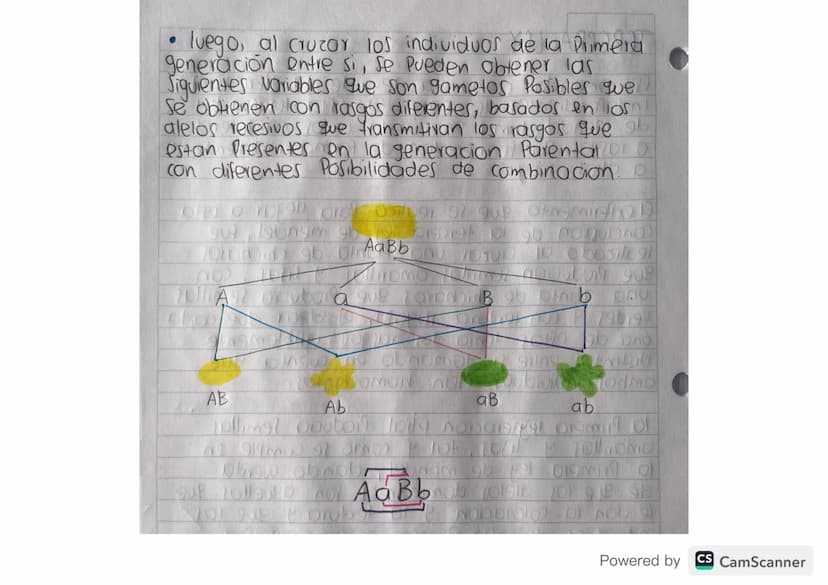 • luego, al cruzar los individuos de la Primera
generación entre si, se Pueden obtener las
siguientes variables que son gametos Posibles que
se obtienen con rasgos diferentes, basados en los
alelos recesivos que transmitivan los rasgos que
estan Presentes en la generacion Parental
con diferentes Posibilidades de combinacion.
AaBb
A a B b
AB Ab aB ab
AaBb
Powered by CS CamScanner